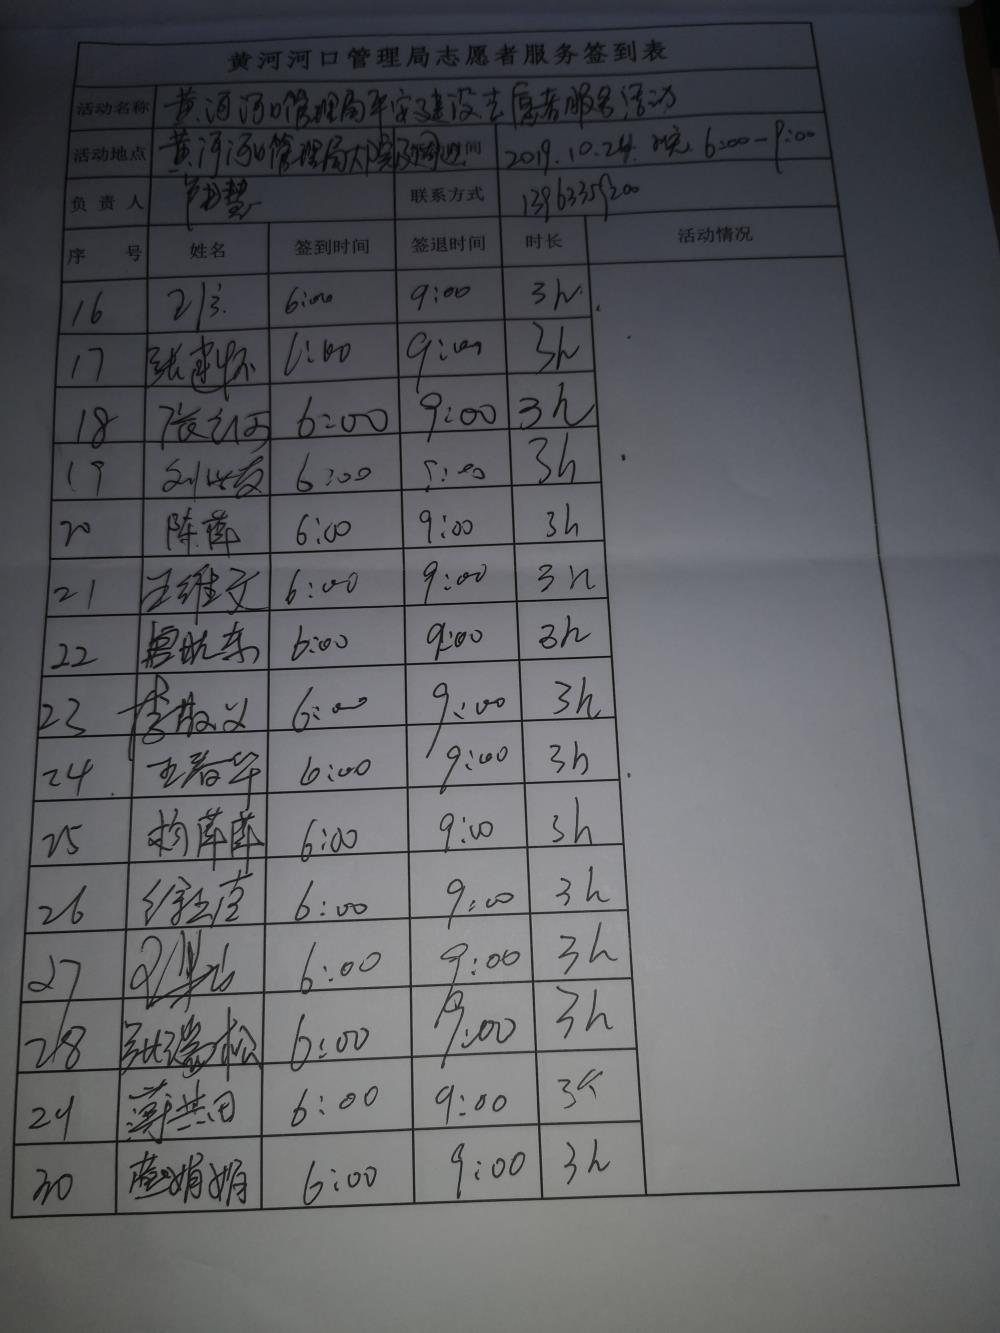 黄河河口管理局志愿者服务签到表
活动名称 黄河河口管理局平安建设志愿者服务活动
活动地点 黄河河口管理局大院及周边 时间 2019.10.24 晚 6:00-9:00
负责人 联系方式
序号 姓名 签到时间 签退时间 时长 活动情况
16 6:00 9:00 3h
17 张建怀 6:00 9:00 3h
18 6:00 9:00 3h
19 6:00 9:00 3h
20 陈萍 6:00 9:00 3h
21 王维文 6:00 9:00 3h
22 6:00 9:00 3h
23 李敬义 6:00 9:00 3h
24 王春华 6:00 9:00 3h
25 6:00 9:00 3h
26 6:00 9:00 3h
27 6:00 9:00 3h
28 张瑞松 6:00 9:00 3h
29 薄其田 6:00 9:00 3h
30 娟娟 6:00 9:00 3h